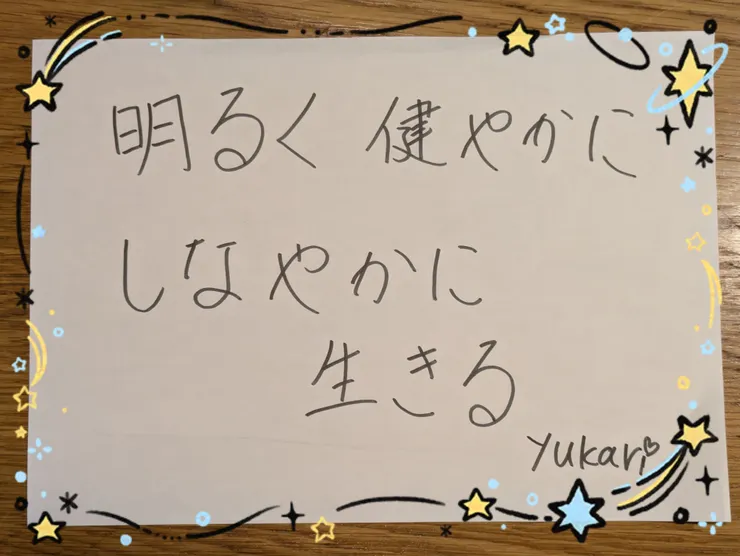 明るく 健やかに
しなやかに
生きる
Yukari